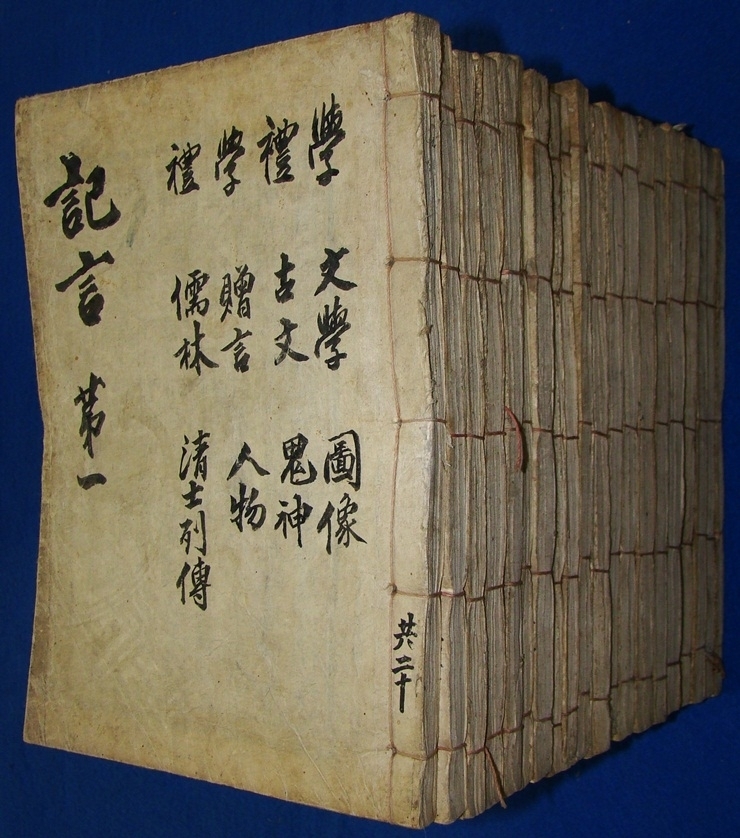 共二十
學 文學 圖像
禮 古文 鬼神
學 贈言 人物
禮 儒林 清士列傳
記言 第一